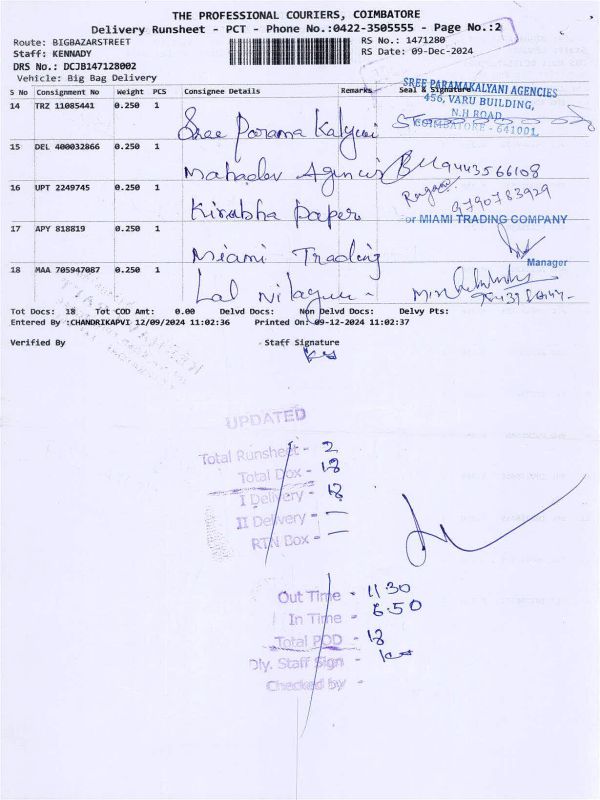 THE PROFESSIONAL COURIERS, COIMBATORE
Delivery Runsheet - PCT - Phone No.:0422-3505555 - Page No.:2
Route: BIGBAZARSTREET RS No.: 1471280
Staff: KENNADY RS Date: 09-Dec-2024
DRS No.: DCJB147128002
Vehicle: Big Bag Delivery
S No Consignment No Weight PCS Consignee Details Remarks Seal & Signature
SREE PARAMAKALYANI AGENCIES
456, VARU BUILDING,
N.H ROAD,
COIMBATORE - 641001.
14 TRZ 11085441 0.250 1 Sree Parama Kalyani
15 DEL 400032866 0.250 1 Mahadev Agencies 9443566108
16 UPT 2249745 0.250 1 Kirabha paper 9790783929
For MIAMI TRADING COMPANY
17 APY 818819 0.250 1 Miami Trading
Manager
18 MAA 705947087 0.250 1 Lal
Tot Docs: 18 Tot COD Amt: 0.00 Delvd Docs: Non Delvd Docs: Delvy Pts:
Entered By :CHANDRIKAPVI 12/09/2024 11:02:36 Printed On: 09-12-2024 11:02:37
Verified By Staff Signature
UPDATED
Total Runsheet - 2
Total Dox - 18
I Delivery - 18
II Delivery - —
RTN Box - —
Out Time - 11 30
In Time - 6.50
Total POD - 18
Dly. Staff Sign -
Checked by -